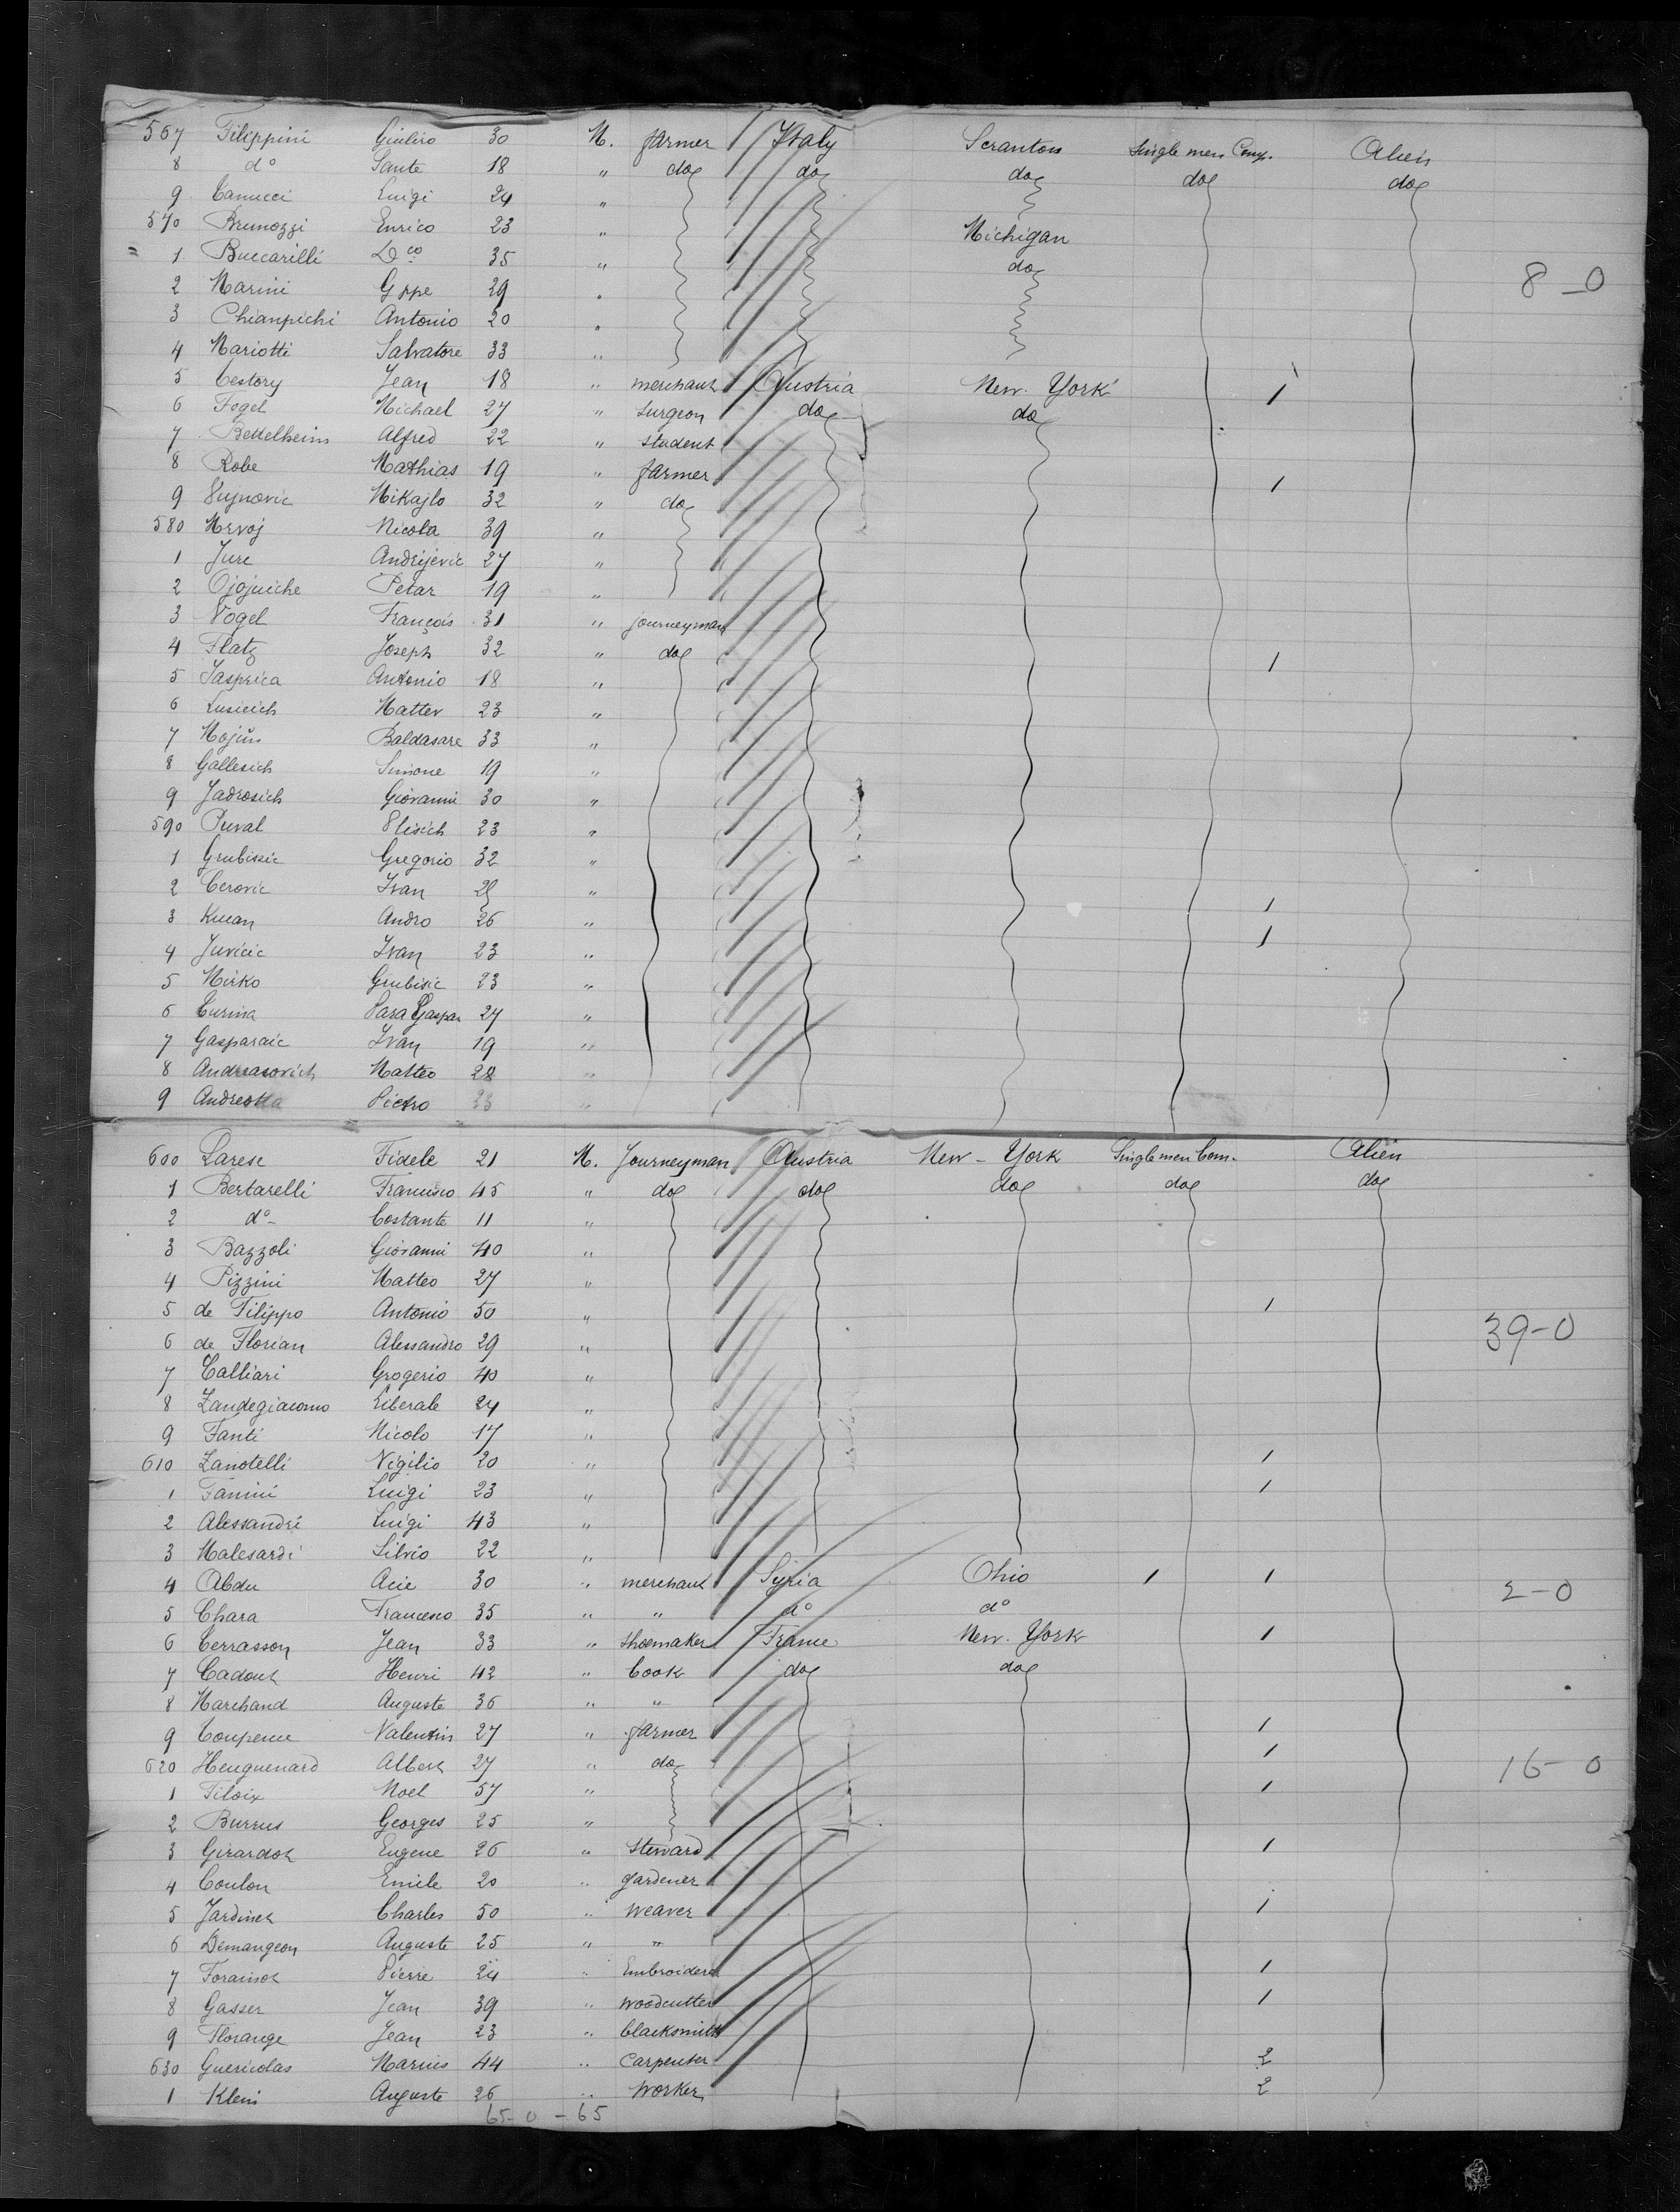 567 Filippini Giulio 30 M. farmer Italy Scranton Single men Comp. Alien
8 d° Sante 18 " do do do do do
9 Canucci Luigi 24 "
570 Brunozzi Enrico 23 " Michigan
= 1 Buccarilli D.co 35 " do
2 Marini Gppe 29 " 8-0
3 Chianpichi Antonio 20 "
4 Mariotti Salvatore 33 "
5 Cestory Jean 18 " merchant Austria New-York 1
6 Fogel Michael 27 " Surgeon do do
7 Bettelheim Alfred 22 " student
8 Robe Mathias 19 " farmer 1
9 Vujnovic Mikajlo 32 " do
580 Mrvoj Nicola 39 "
1 Jure Andrijevic 27 "
2 Ojojuiche Petar 19 "
3 Vogel François 31 " journeyman
4 Flatz Joseph 32 " do 1
5 Jasprica Antonio 18 "
6 Lusicich Matter 23 "
7 Mojŭs Baldasare 33 "
8 Gallesich Simone 19 "
9 Jadrosich Giovanni 30 "
590 Puval Slisich 23 "
1 Grubiszic Gregorio 32 "
2 Cerovic Ivan 28 " 1
3 Kucan Andro 26 " 1
4 Juvicic Ivan 23 "
5 Mirko Grubisic 23 "
6 Curina Para Gaspar 27 "
7 Gasparaic Ivan 19 "
8 Andreasovich Matteo 28 "
9 Andreotta Pietro 23 "
600 Larese Fidele 21 M. Journeyman Austria New-York Single men Com. Alien
1 Bertarelli Francisco 45 " do do do do do
2 d°- Costante 11 "
3 Bazzoli Giovanni 40 "
4 Pizzini Matteo 27 "
5 de Filippo Antonio 50 " 1
6 de Florian Alessandro 29 " 39-0
7 Calliari Grogerio 40 "
8 Zandegiacomo Liberale 24 "
9 Fanti Nicolo 17 "
610 Zanotelli Vigilio 20 " 1
1 Fanini Luigi 23 " 1
2 Alessandri Luigi 43 "
3 Malesardi Silvio 22 "
4 Abdu Acie 30 " merchant Syria Ohio 1 1 2-0
5 Chara Francesco 35 " " d° d°
6 Cerrasson Jean 33 " shoemaker France New-York 1
7 Cadout Henri 42 " Cook do do
8 Marchand Auguste 36 " "
9 Coupenne Valentin 27 " farmer 1
620 Heuguenard Albert 27 " do 1 16-0
1 Filoix Noel 57 " 1
2 Burrus Georges 25 "
3 Girardot Eugene 26 " Steward 1
4 Coulon Emile 20 " gardener
5 Jardinet Charles 50 " weaver 1
6 Demangeon Auguste 25 " "
7 Forainot Pierre 24 " Embroiderer 1
8 Gasser Jean 39 " woodcutter 1
9 Florange Jean 23 " blacksmith
630 Guericolas Marius 44 " Carpenter 2
1 Klein Auguste 26 " Worker 2
65-0-65